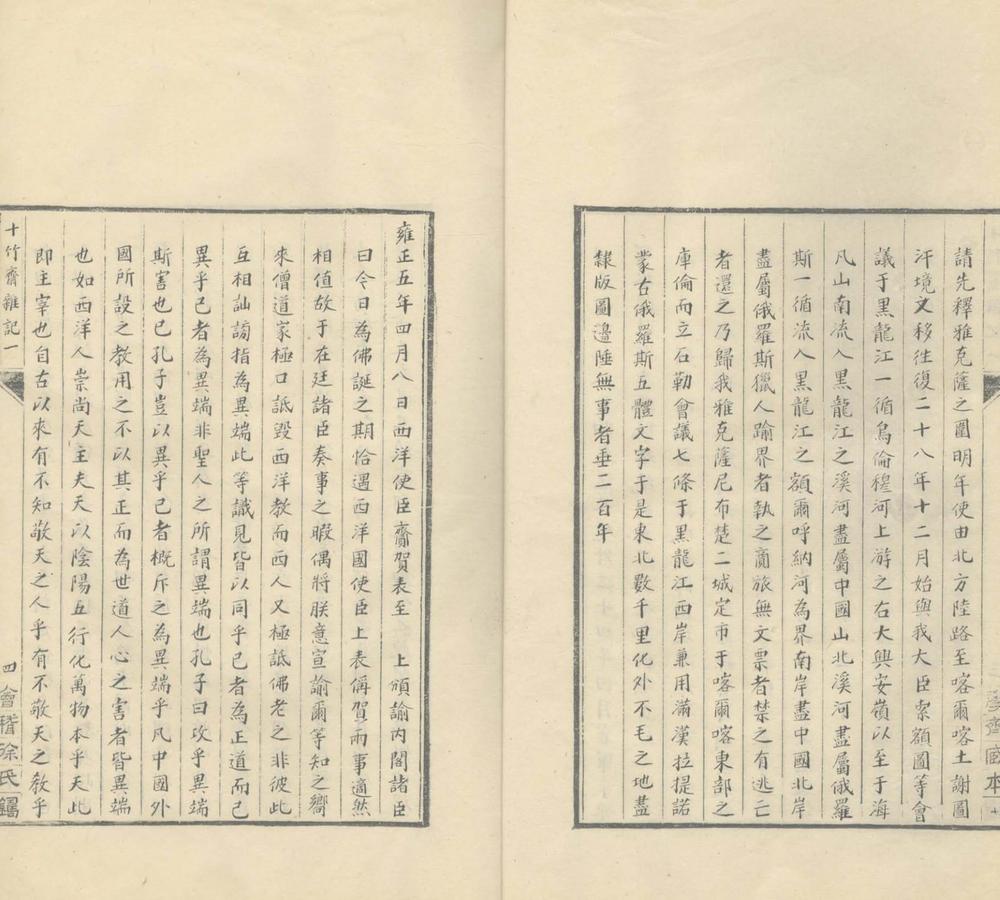 請先釋雅克薩之圍明年使由北方陸路至喀爾喀土謝圖
汗境文移往復二十八年十二月始與我大臣索額圖等會
議于黑龍江一循烏倫穆河上游之右大興安嶺以至于海
凡山南流入黑龍江之溪河盡屬中國山北溪河盡屬俄羅
斯一循流入黑龍江之額爾呼納河為界南岸盡中國北岸
盡屬俄羅斯獵人踰界者執之商旅無文票者禁之有逃亡
者還之乃歸我雅克薩尼布楚二城定市于喀爾喀東部之
庫倫而立石勒會議七條于黑龍江西岸兼用滿漢拉提諾
蒙古俄羅斯五體文字于是東北數千里化外不毛之地盡
隸版圖邊陲無事者垂二百年
雍正五年四月八日西洋使臣齎賀表至　上頒諭內閣諸臣
曰今日為佛誕之期恰遇西洋國使臣上表偁賀兩事適然
相值故于在廷諸臣奏事之暇偶將朕意宣諭爾等知之嚮
來僧道家極口詆毀西洋教而西人又極詆佛老之非彼此
互相訕謗指為異端此等識見皆以同乎己者為正道而己
異乎己者為異端非聖人之所謂異端也孔子曰攻乎異端
斯害也已孔子豈以異乎己者概斥之為異端乎凡中國外
國所設之教用之不以其正而為世道人心之害者皆異端
也如西洋人崇尚天主夫天以陰陽五行化萬物本乎天此
即主宰也自古以來有不知敬天之人乎有不敬天之教乎
十竹齋雜記一
四
會稽徐氏鑄